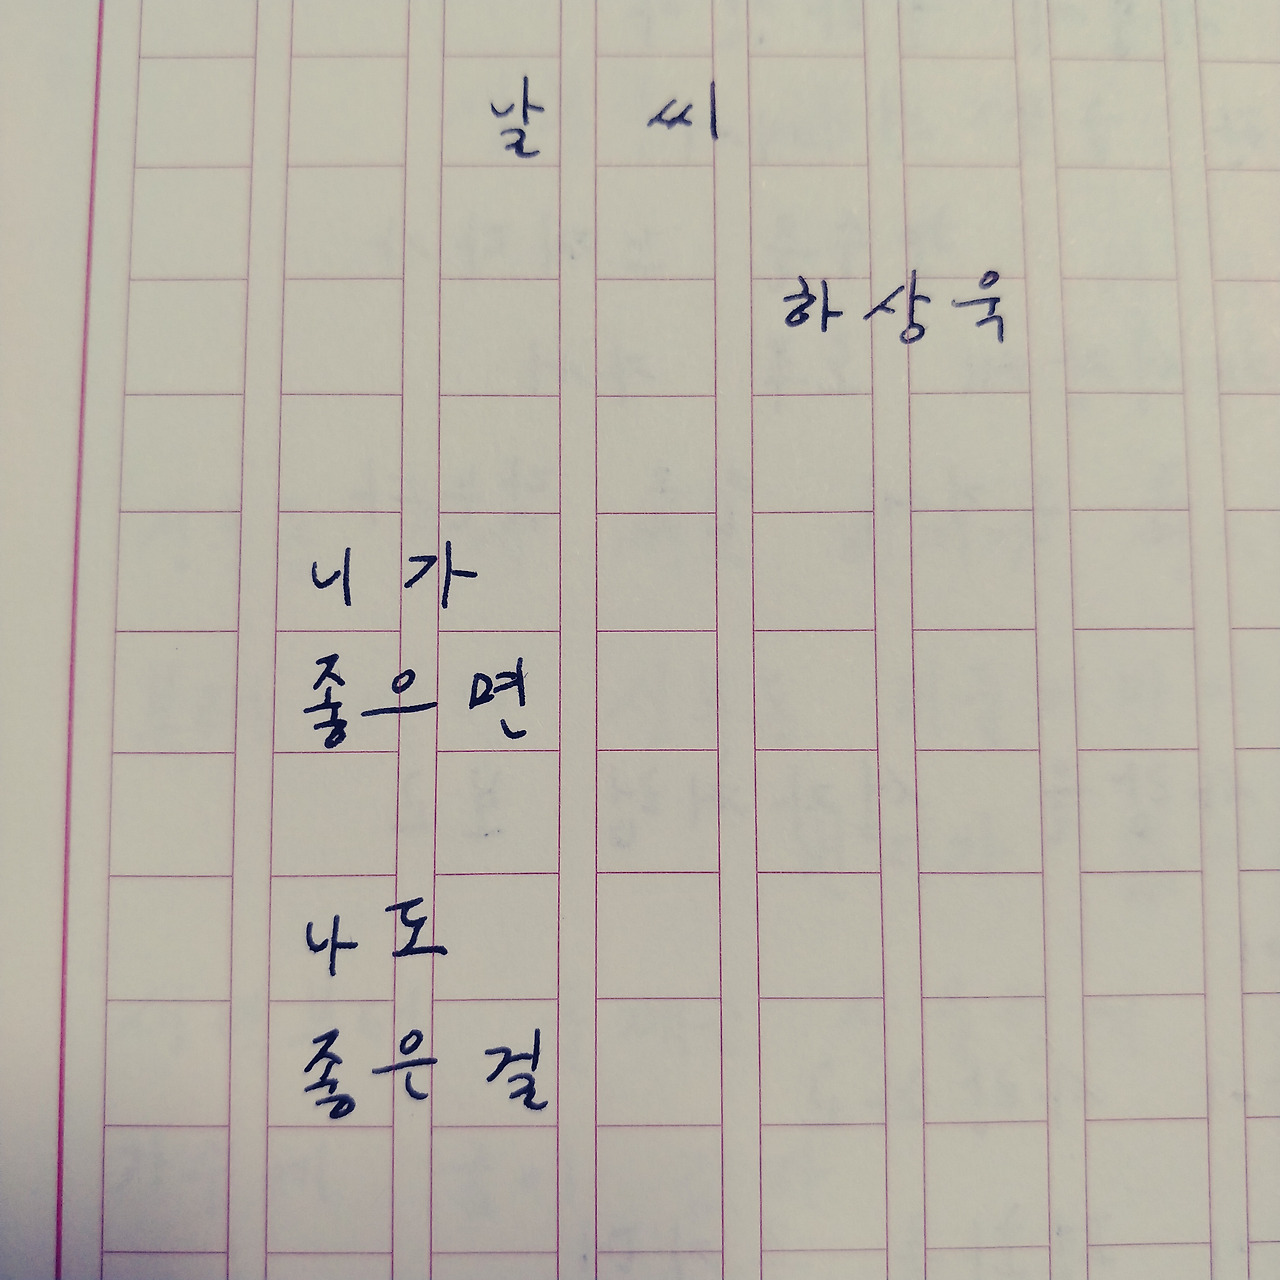 날 씨
하상욱
니가
좋으면
나도
좋은 걸